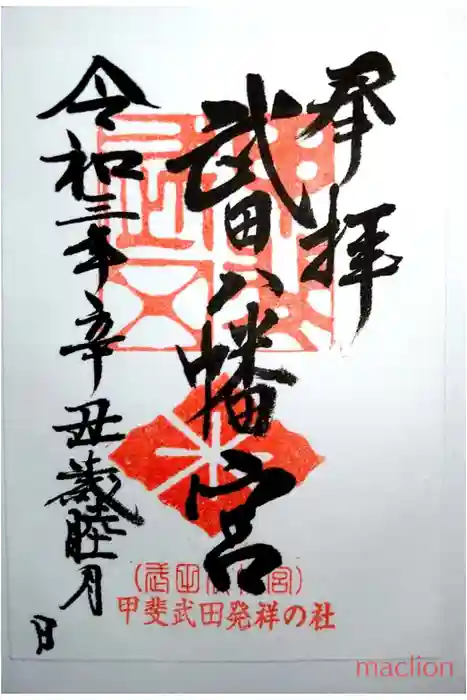 奉拝
武田八幡宮
令和三年辛丑歳睦月
日
甲斐武田発祥の社
maclion